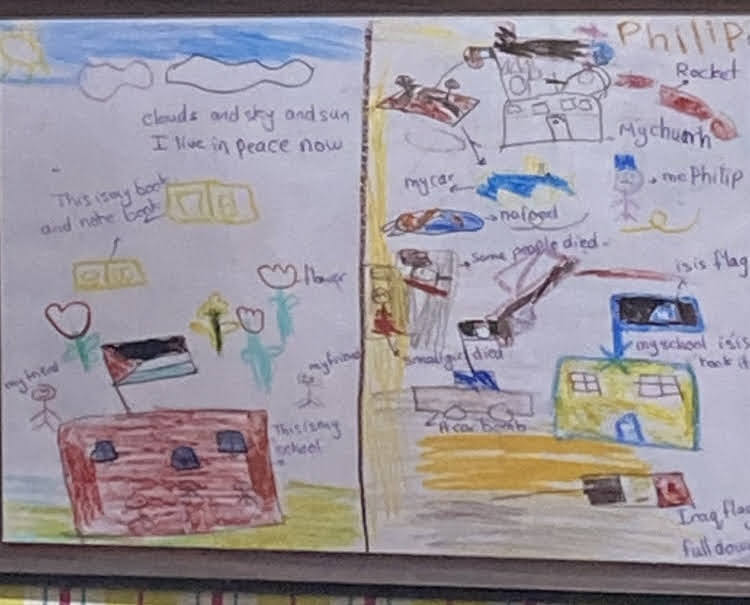 clouds and sky and sun
I live in peace now
This is my book
and note book
flower
my friend
my friend
This is my
school
Philip
Rocket
My church
my car
me Philip
no food
some people died
isis flag
small girl died
my school isis
took it
A car bomb
Iraq flag
full down